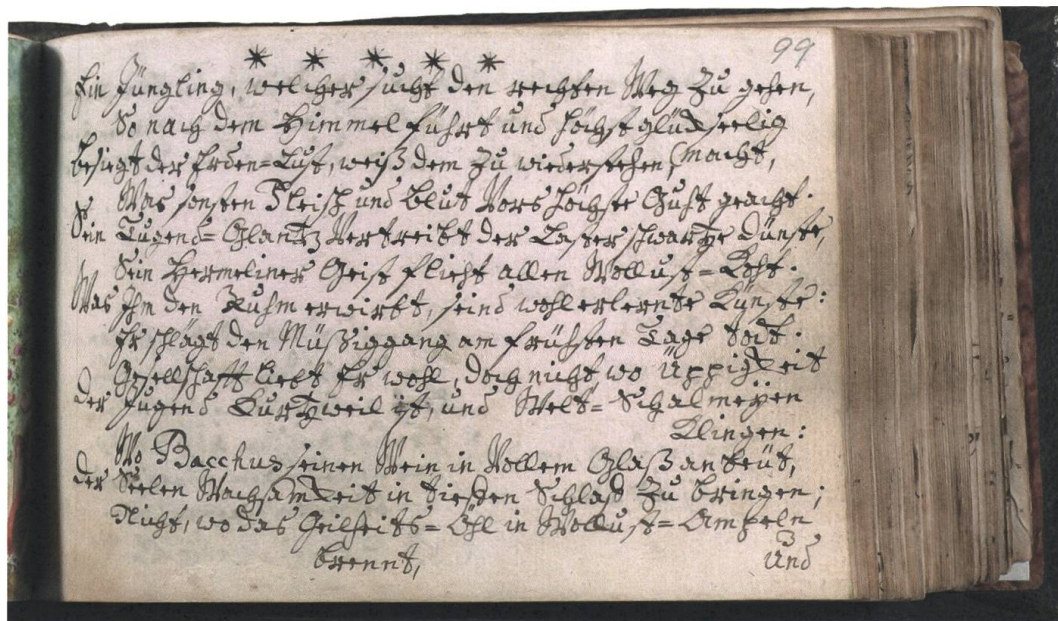 99
Ein Jüngling, welcher sucht den rechten Weg zu gehen,
So nach dem Himmel führt und höchst glückseelig
besiegt der Erden=Lust, weiß dem zu wiederstehen, (macht,
Was sonsten Fleisch und Blut Vors höchste Guht geacht.
Sein Tugend=Glantz Vertreibt der Laster schwartze Dünste,
Sein Hermeliner Geist flieht allen Wollust=Koht.
Was Ihm den Ruhm erwirbt, seind wohl erlernte Künste:
Er schlägt den Müßiggang am frühsten Tage todt.
Gesellschafft liebt Er wohl, doch nicht wo Üppigkeit
der Jugend Kurtzweil ist, und Welt=Schalmeyen
Klingen:
Wo Bacchus seinen Wein in Vollem Glaß anbeüt,
der Seelen Wachsamkeit in tieffen Schlaff zu bringen;
Nicht, wo das Geilheits=Öhl in Wollust=Ampeln
brennt,
Und